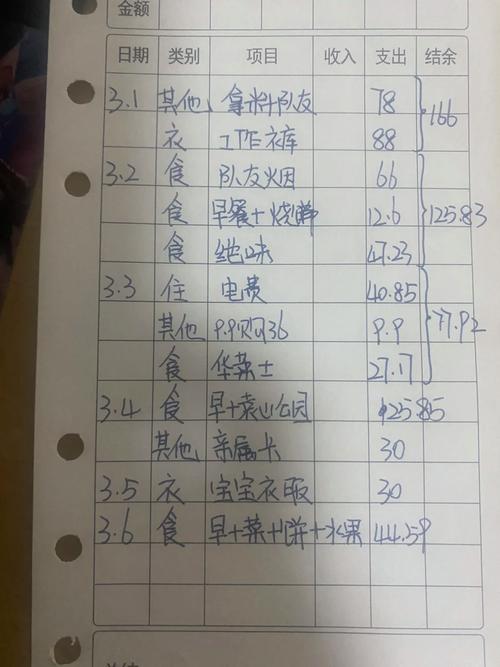 金额
日期 类别 项目 收入 支出 结余
3.1 其他 拿料队友 78
衣 工作衣裤 88 166
3.2 食 队友烟 66
食 早餐+烧 12.6 125.83
食 绝味 47.23
3.3 住 电费 40.85
其他 9.9购36 9.9 77.92
食 华莱士 27.17
3.4 食 早+菜+公园 125.85
其他 亲属卡 30
3.5 衣 宝宝衣服 30
3.6 食 早+菜+饼+水果 44.59